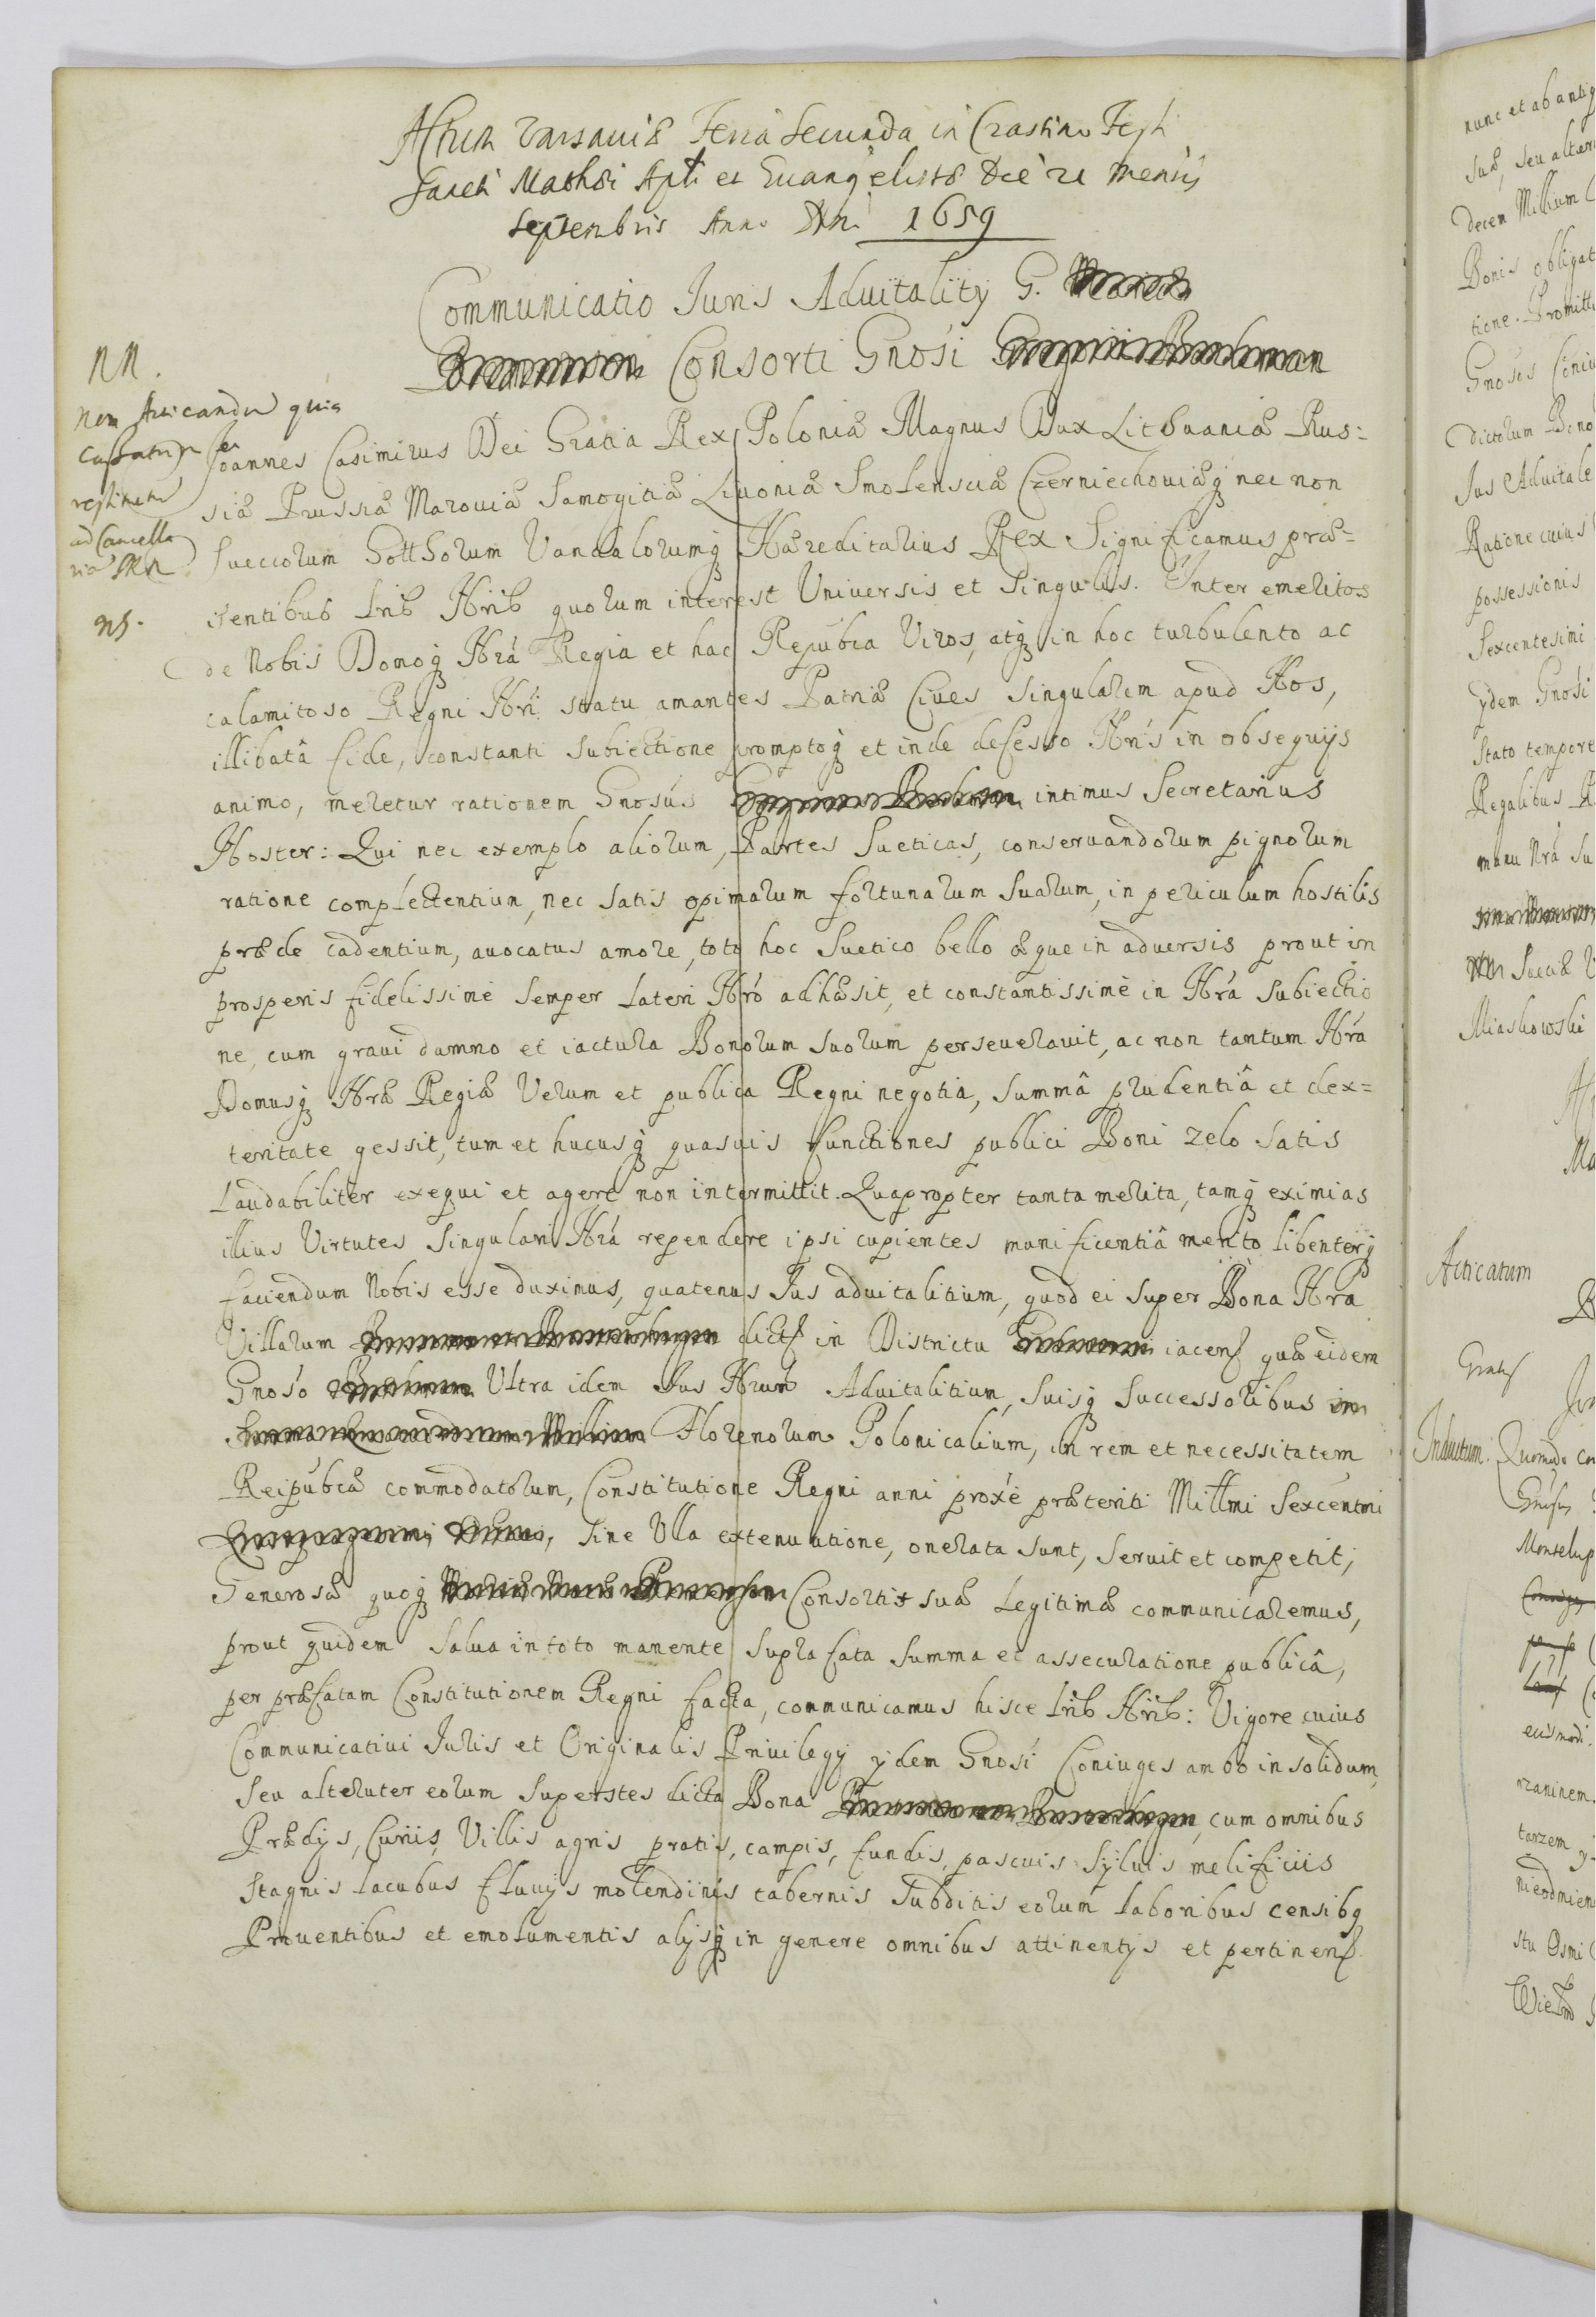 Actum Varsaviæ Feria Secunda in Crastino Festi
Sancti Mathæi Apli et Euangelistæ Die 22 Mensis
Septembris Anno Dni 1659
Communicatio Iuris Aduitalitÿ G.
Consorti Gnosi
NN.
non Acticandu quia
cassatur et
restitutu
ad Cancella
ria
NB.
Joannes Casimirus Dei Gratia Rex Poloniæ Magnus Dux Lithuaniæ Rus:
siæ Prussiæ Mazouiæ Samogitiæ Liuoniæ Smolensciæ Czerniechouiæq nec non
Sueccorum Gotthorum Vandalorumq Hæreditarius Rex Significamus præ=
sentibus Lrib Nrib quorum interest Universis et Singulis. Inter emeritos
de Nobis Domoq Nrá Regia et hac Repubca Viros, atq in hoc turbulento ac
calamitoso Regni Nri statu amantes Patriæ Ciues singularem apud Nos,
illibatâ fide, constanti subiectione promptoq et inde defesso Nris in obsequijs
animo, meretur rationem Gnosus intimus Secretarius
Noster: Qui nec exemplo aliorum, Partes Sueticas, conseruandorum pignorum
ratione complectentium, nec satis opimarum fortunarum suarum, in periculum hostilis
præde cadentium, auocatus amore, toto hoc Suetico bello æque in aduersis prout in
prosperis fidelissime semper lateri Nró adhæsit, et constantissimè in Nrá subiectio
ne, cum graui damno et iactura Bonorum suorum perseuerauit, ac non tantum Nra
Domusq Nræ Regiæ Verum et publica Regni negotia, summâ prudentiâ et dex=
teritate gessit, tum et hucusq quasuis functiones publici Boni zelo satis
laudabiliter exequi et agere non intermittit. Quapropter tanta merita, tamq eximias
illius Virtutes singulari Nrá rependere ipsi cupientes munificentiâ merito libenterq
faciendum Nobis esse duximus, quatenus Ius aduitalitium, quod ei super Bona Nra
Villarum dicts in Districtu iacens quæ eidem
Gnoso Ultra idem Ius Nrum Aduitalitium, suisq successoribus in
Florenorum Polonicalium, in rem et necessitatem
Reipubcæ commodatorum, Constitutione Regni anni proxé præteriti Millmi Sexcentmi
sine Ulla extenuatione, onerata sunt, seruit et competit;
Generosæ quoq Consorti suæ Legitimæ communicaremus,
prout quidem salua in toto manente supra fata summa et assecuratione publicâ,
per præfatam Constitutionem Regni facta, communicamus hisce Lrib Nrib: Vigore cuius
Communicatiui Iuris et Originalis Priuilegÿ ÿdem Gnosi Coniuges ambo in solidum,
seu alteruter eorum superstes dicta Bona cum omnibus
Prædÿs, Curiis, Villis agris pratis, campis, fundis, pascuis syluis melificiis
stagnis lacubus fluuÿs molendinis tabernis subditis eorum laboribus censibq
Prouentibus et emolumentis alÿsq in genere omnibus attinentÿs et pertinens
nunc et ab antiq
suæ, seu alter
Decem Millium
Bonis obligat
tione. Promitt
Gnosos Coniu
dictorum Bono
Ius Aduitale
Ratione cuius
possessionis
Sexcentesimi
ÿdem Gnosi
stato tempore
Regalibus
manu Nrá su
Sueciæ
Miaskowski
Acticatum
Inductum. Quomodo
Monselup
eiusmodi.